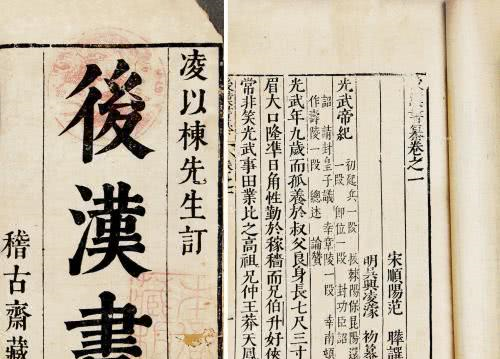 凌以棟先生訂
後漢書
稽古齋藏
後漢書纂卷之一
宋順陽范曄譔
明吳興凌濛初纂
光武帝紀
初起兵一段
一段 即位一段 封功臣詔
詔 請封皇子議 幸章陵一段 幸南頓
作壽陵一段 總述 論贊
光武年九歲而孤養於叔父良身長七尺三寸
眉大口隆準日角性勤於稼穡而兄伯升好俠
常非笑光武事田業比之高祖兄仲王莽天鳳